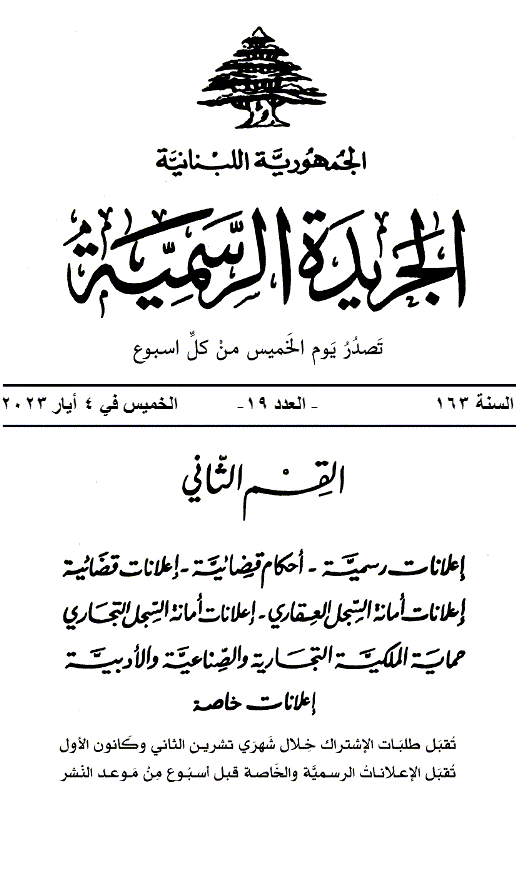 الجُمهُوريَّة اللبْنانيَّة
الجَريدَة الرَّسَمِيَّة
تَصدُرُ يَوم الخَميس منْ كلِّ اسبوع
السنة ١٦٣ - العدد ١٩- الخميس في ٤ أيار ٢٠٢٣
القِسْم الثَّاني
إعلانات رسميَّة - أحكام قضائيَّة - إعلانات قضائية
إعلانات أمانة السِّجل العقاري - إعلانات أمانة السِّجل التجاري
حماية الملكيَّة التجارية والصِّناعيَّة والأدبيَّة
إعلانات خاصة
تُقبَل طلبَات الإشتراك خِلال شَهرَي تشرين الثاني وكَانون الأول
تُقبَل الإعلاناتُ الرسميَّة والخَاصة قبل أسبُوع مِنْ مَوعد النّشر